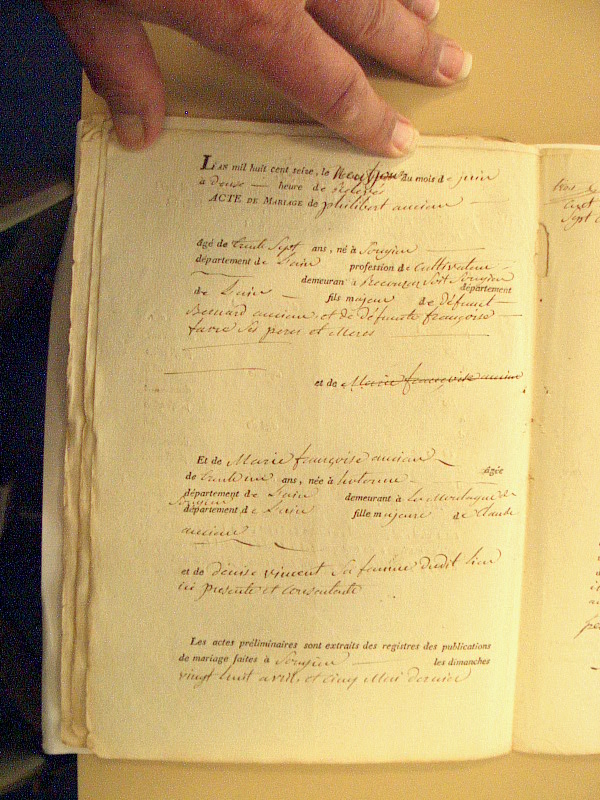 LAN mil huit cent seize, le neuf juin du mois de juin
à douse heure de relevés
ACTE DE MARIAGE de philibert ancian
âgé de trente Sept ans, né à Songieu
département de Lain profession de Cultivateur
demeuran à Soit Songieu
de Lain département
fils majeur de Défunt
Bernard ancian, et de Défunte françoise
favre Ses peres et Meres
et de Marie françoise ancian
Et de Marie françoise ancian
âgée
de trente un ans, née à hotonne
département de Lain demeurant à la Montagne de
Songieu
département de Lain fille majeure de Claude
ancian
et de denise vincent Sa femme dudit lieu
ici presente et consentante
Les actes préliminaires sont extraits des registres des publications
de mariage faites à Songieu les dimanches
vingt huit avril, et cinq Mai dernier
tros
Sept